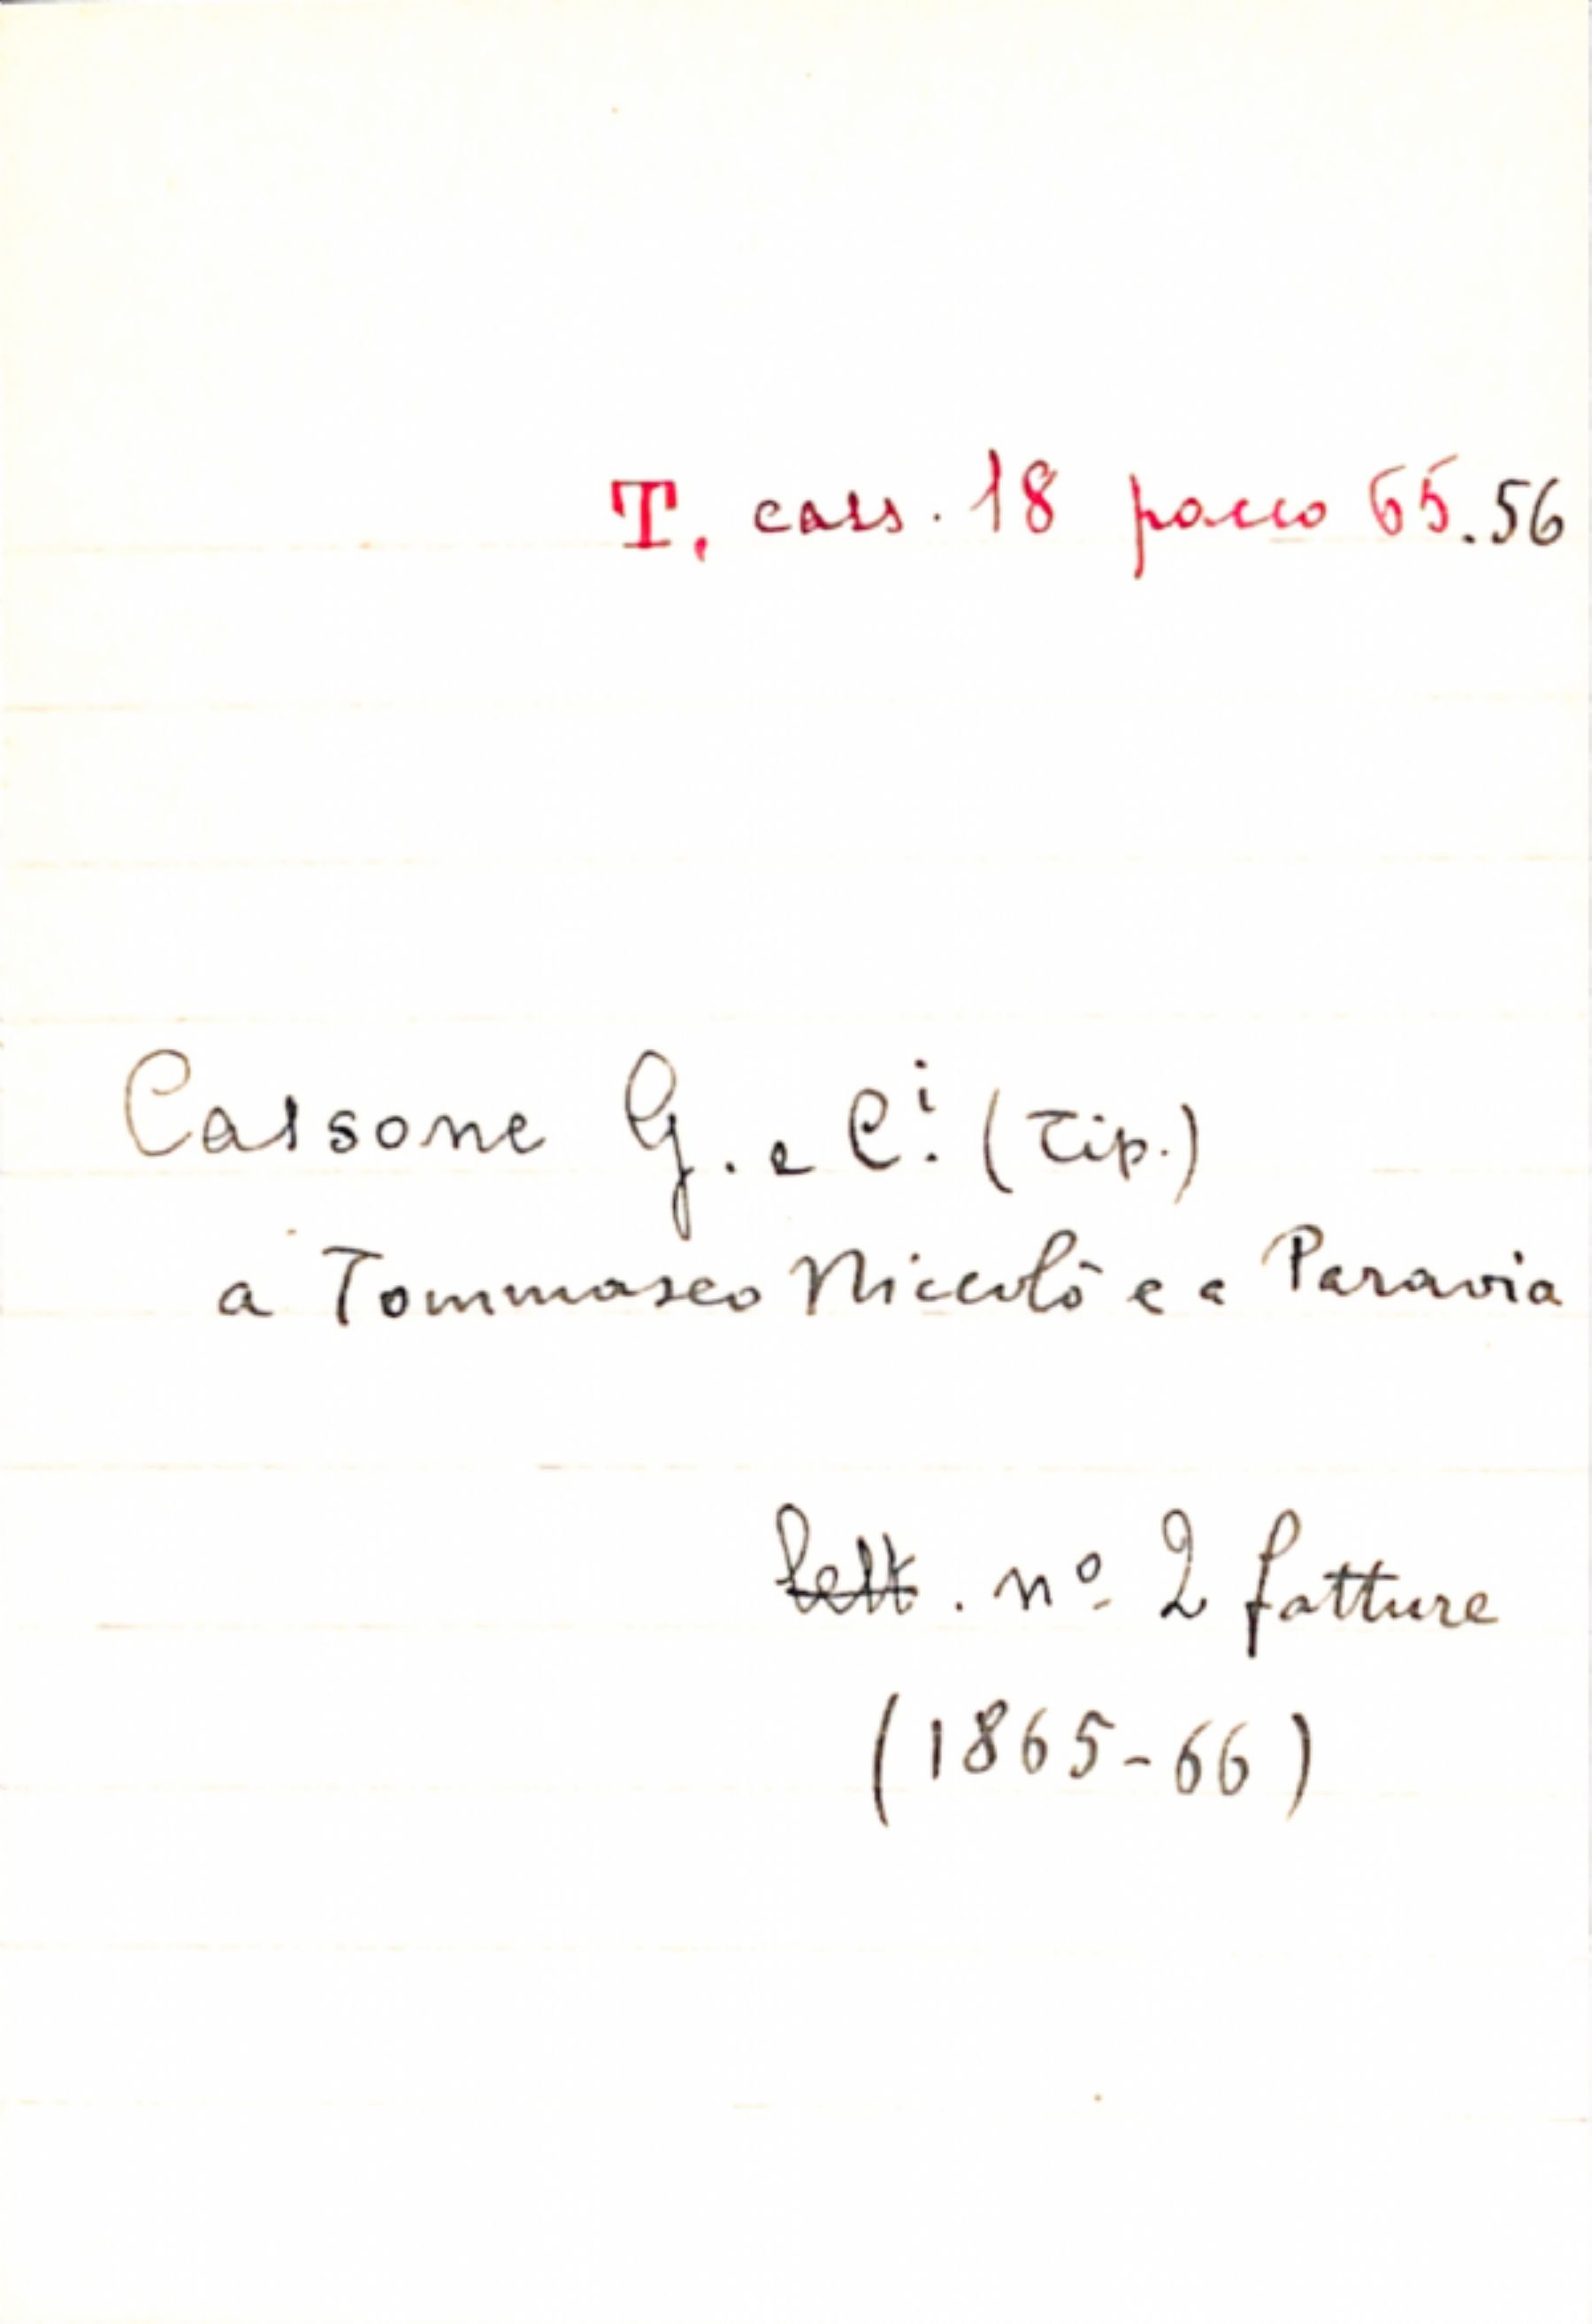 T. cass. 18 pacco 65.56
Cassone G. e C.i (Tip.)
a Tommaseo Niccolò e a Paravia
lett. nº 2 fatture
(1865-66)